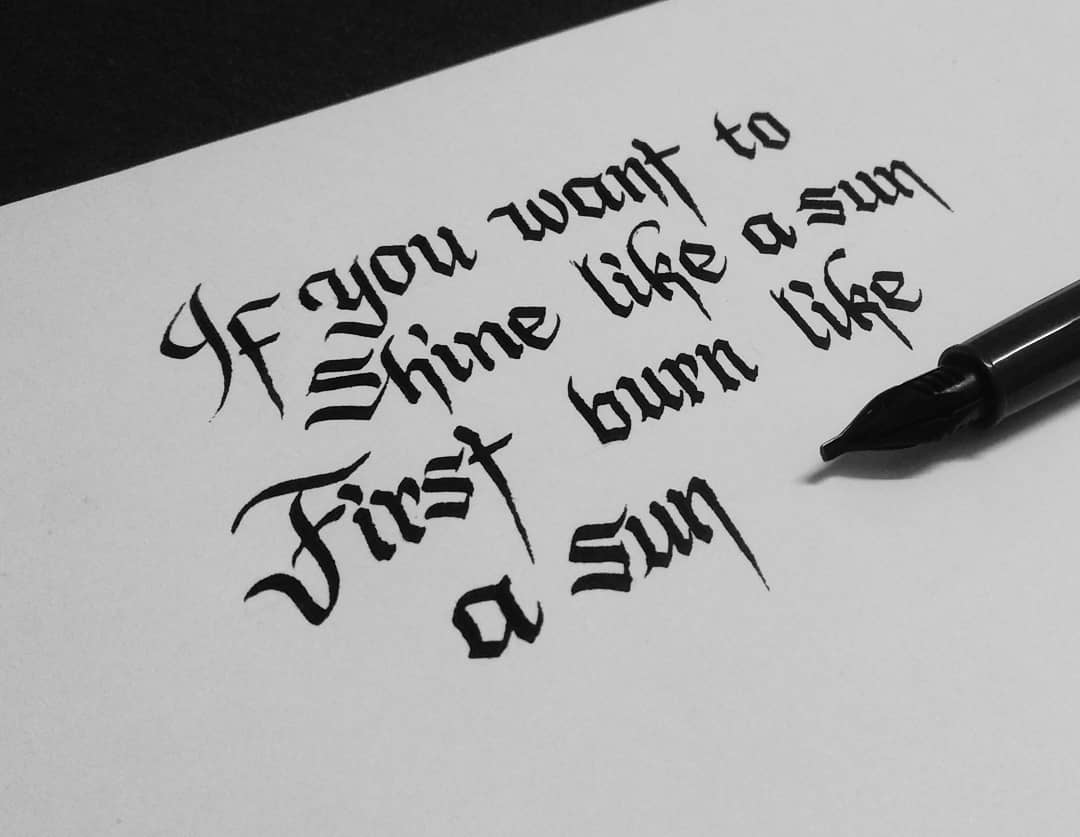 If you want to
Shine like a sun
First burn like
a sun